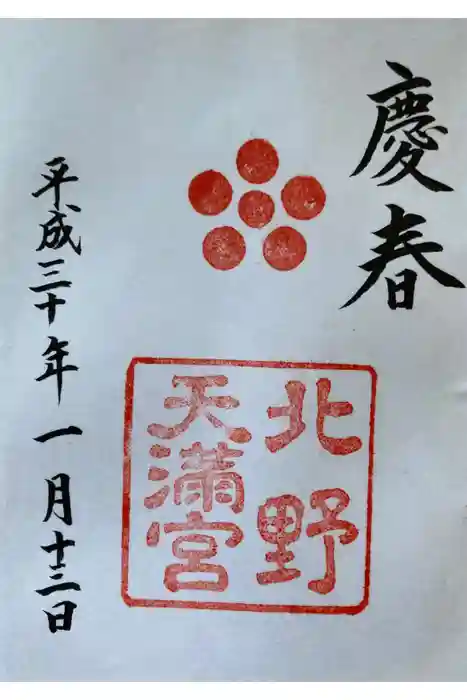 慶春
北野
天満宮
平成三十年一月十二日